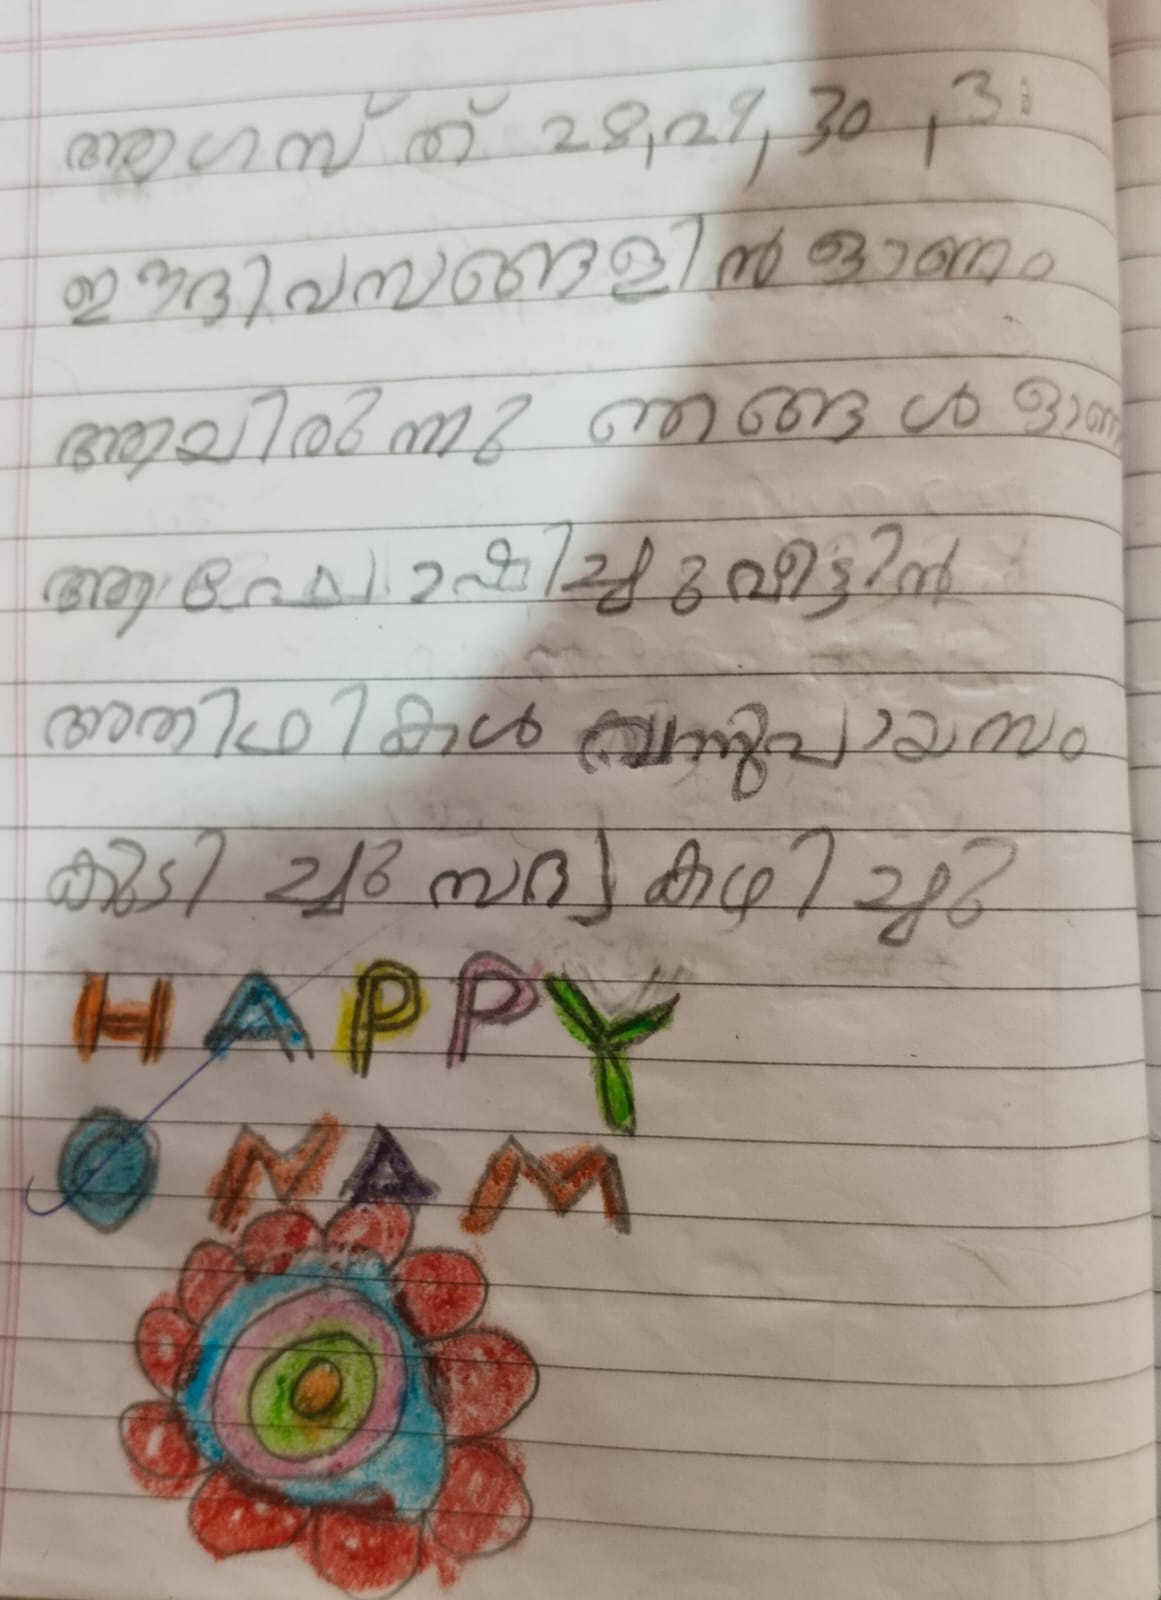 ആഗസ്ത് 28,29, 30 , 31
ഈ ദിവസങ്ങളിൽ ഓണം
ആയിരുന്നു ഞങ്ങൾ ഓണം
ആഘോഷിച്ചു വീട്ടിൽ
അതിഥികൾ വന്നു പായസം
കുടിച്ചു സദ്യ കഴിച്ചു
HAPPY
ONAM